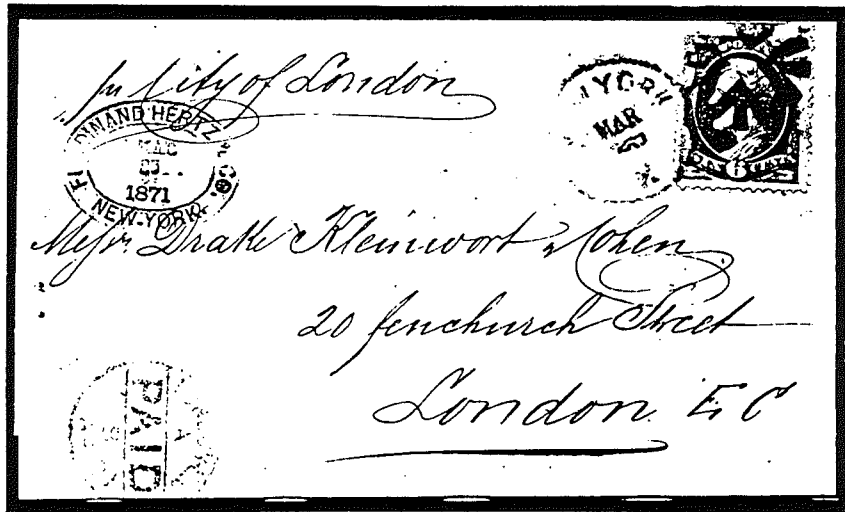 per City of London
FERDINAND HERTZ & CO.
MAR
23
1871
NEW-YORK.
YORK
MAR
6
Messrs. Drake Kleinwort & Cohen
20 Fenchurch Street
London E C
PAID